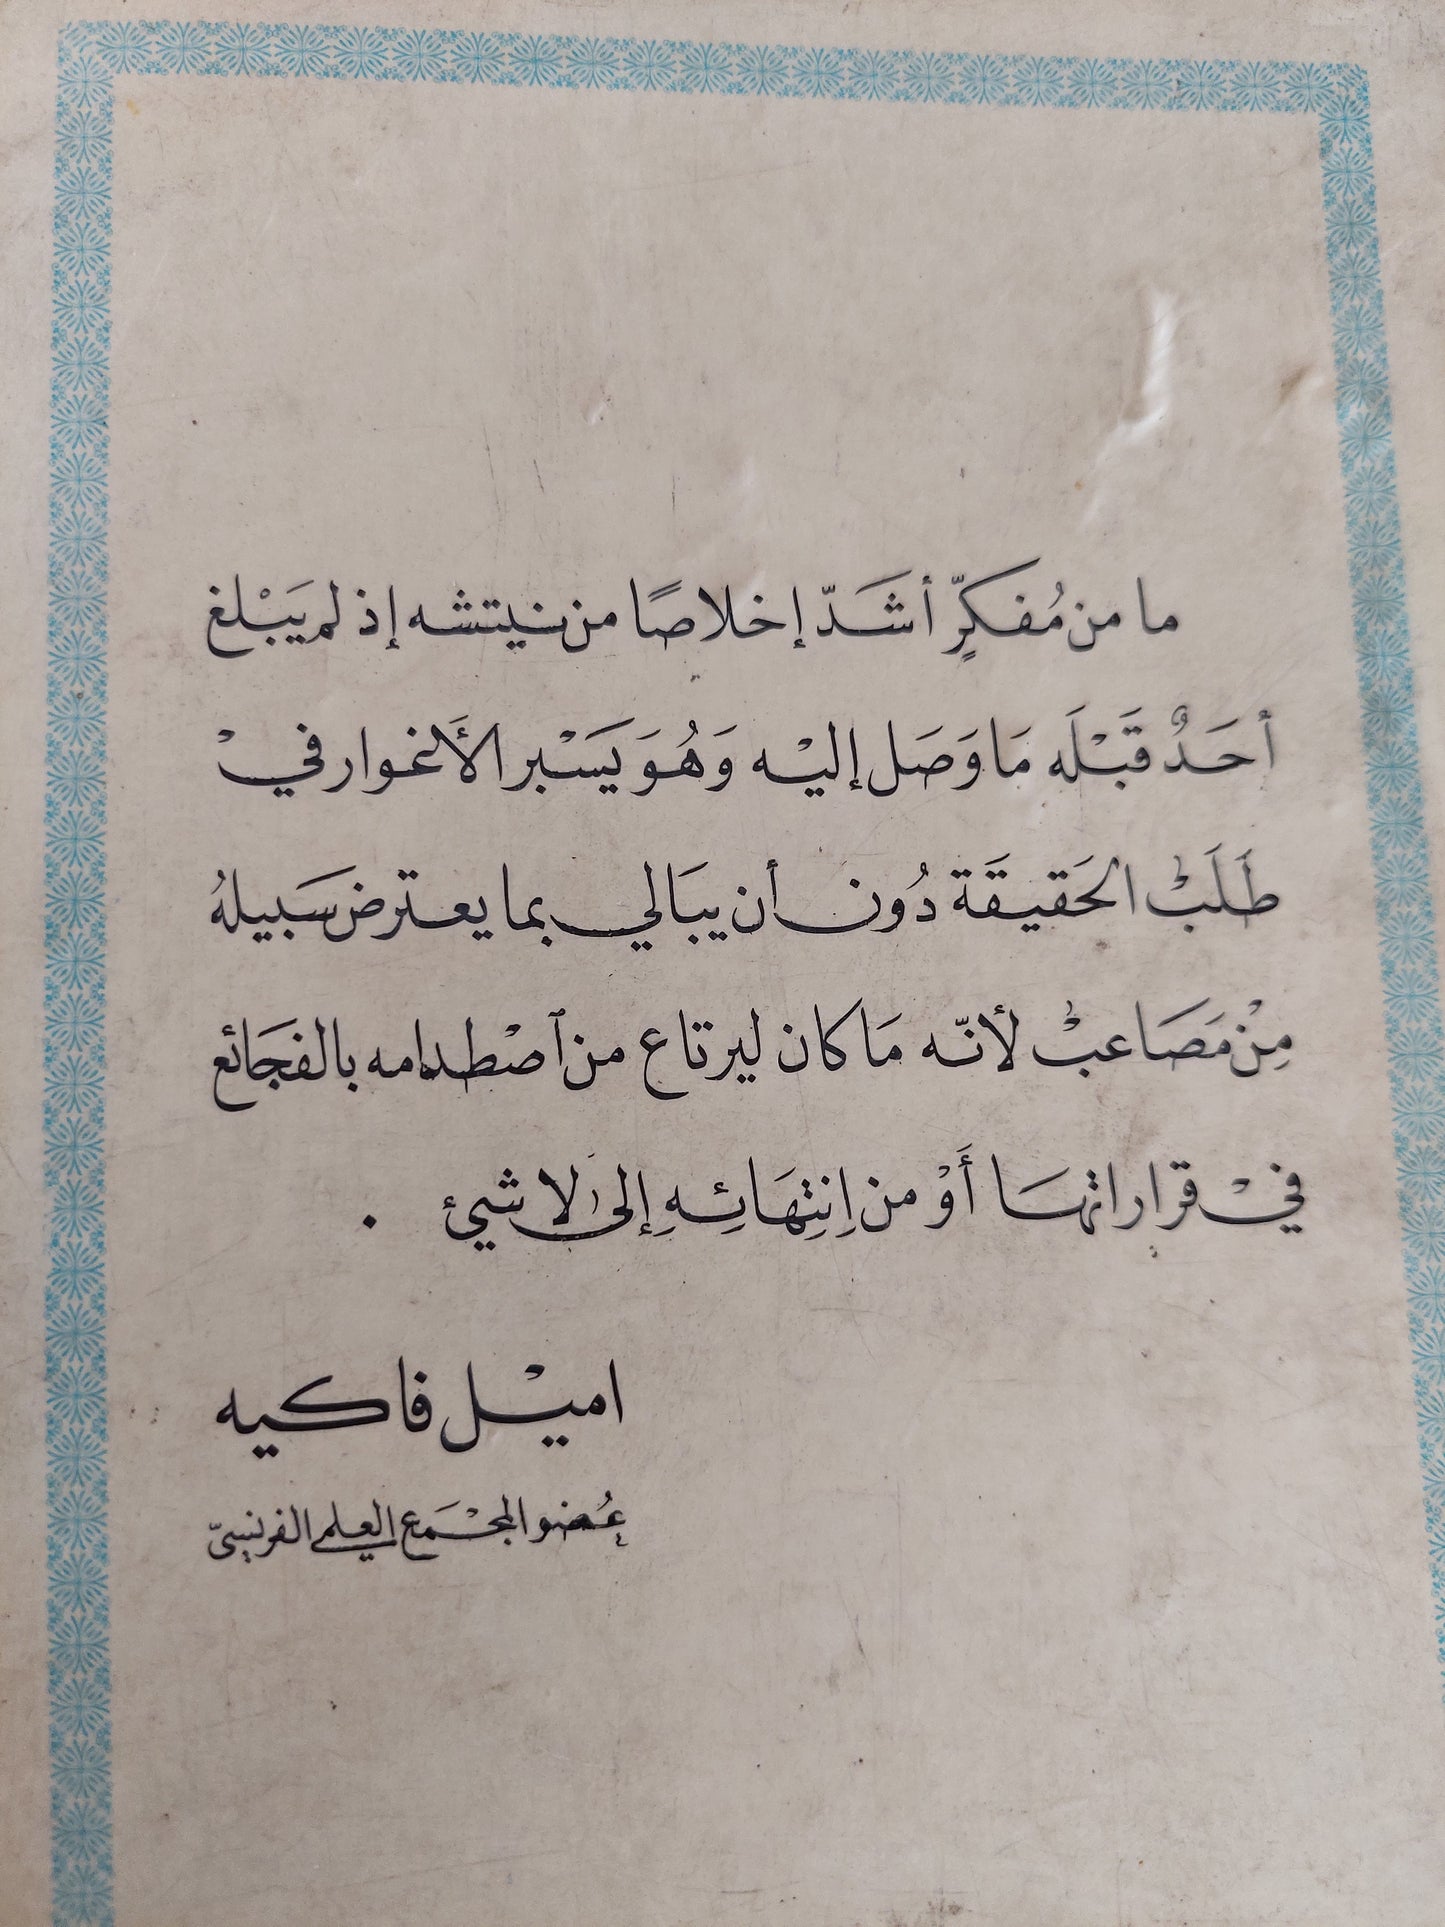 ما من مُفكرٍّ أشَدّ إخلاصًا من نيتشه إذ لم يَبْلغ
أحَدٌ قَبْلَه مَا وَصَل إليْه وَهُوَ يَسْبر الأَغوار فيْ
طَلَبْ الحَقيقَة دُون أن يبَالي بما يعترض سَبيلهُ
مِنْ مَصَاعبْ لأنّه مَا كان ليرتاع من ٱصْطدامه بالفجَائع
فيْ قراراتهَا أَوْ من اِنتِهَائِهِ إلى لا شيئ .
اميْل فاكيه
عُضو المجْمَع العلمي الفرنسيّ